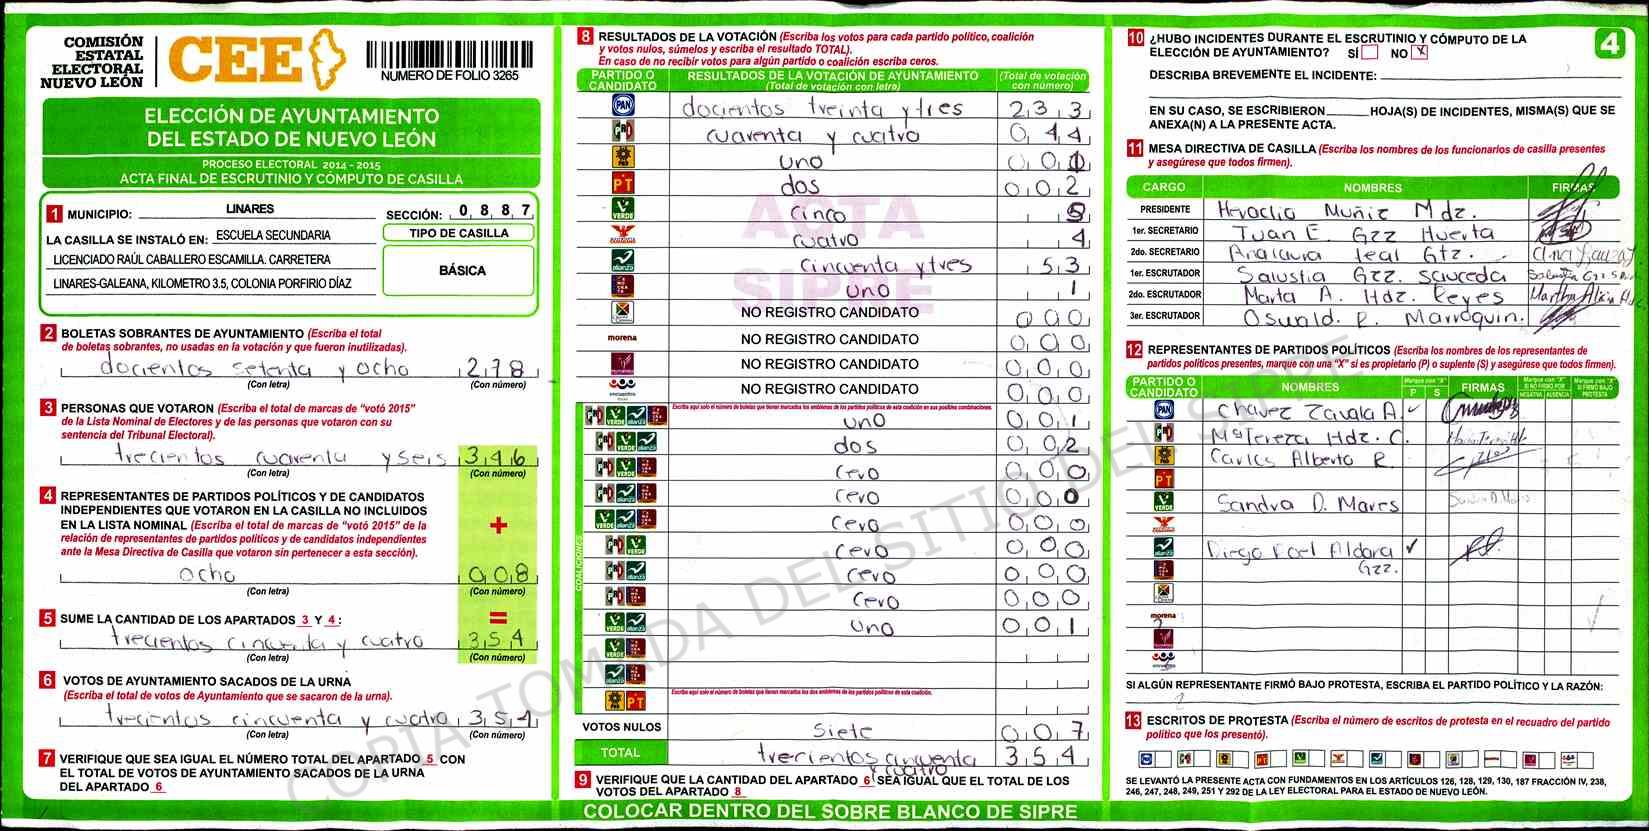 COMISIÓN
ESTATAL
ELECTORAL
NUEVO LEÓN
CEE
NUMERO DE FOLIO 3265
ELECCIÓN DE AYUNTAMIENTO
DEL ESTADO DE NUEVO LEÓN
PROCESO ELECTORAL 2014 - 2015
ACTA FINAL DE ESCRUTINIO Y CÓMPUTO DE CASILLA
1 MUNICIPIO: LINARES SECCIÓN: 0 8 8 7
LA CASILLA SE INSTALÓ EN: ESCUELA SECUNDARIA
LICENCIADO RAÚL CABALLERO ESCAMILLA. CARRETERA
LINARES-GALEANA, KILOMETRO 3.5, COLONIA PORFIRIO DÍAZ
TIPO DE CASILLA
BÁSICA
2 BOLETAS SOBRANTES DE AYUNTAMIENTO (Escriba el total
de boletas sobrantes, no usadas en la votación y que fueron inutilizadas).
docientos setenta y ocho 2 7 8
(Con letra) (Con número)
3 PERSONAS QUE VOTARON (Escriba el total de marcas de "votó 2015"
de la Lista Nominal de Electores y de las personas que votaron con su
sentencia del Tribunal Electoral).
trecientos cuarenta y seis 3 4 6
(Con letra) (Con número)
4 REPRESENTANTES DE PARTIDOS POLÍTICOS Y DE CANDIDATOS
INDEPENDIENTES QUE VOTARON EN LA CASILLA NO INCLUIDOS
EN LA LISTA NOMINAL (Escriba el total de marcas de "votó 2015" de la
relación de representantes de partidos políticos y de candidatos independientes
ante la Mesa Directiva de Casilla que votaron sin pertenecer a esta sección).
+
ocho 0 0 8
(Con letra) (Con número)
5 SUME LA CANTIDAD DE LOS APARTADOS 3 Y 4: =
trecientos cincuenta y cuatro 3 5 4
(Con letra) (Con número)
6 VOTOS DE AYUNTAMIENTO SACADOS DE LA URNA
(Escriba el total de votos de Ayuntamiento que se sacaron de la urna).
trecientos cincuenta y cuatro 3 5 4
(Con letra) (Con número)
7 VERIFIQUE QUE SEA IGUAL EL NÚMERO TOTAL DEL APARTADO 5 CON
EL TOTAL DE VOTOS DE AYUNTAMIENTO SACADOS DE LA URNA
DEL APARTADO 6
8 RESULTADOS DE LA VOTACIÓN (Escriba los votos para cada partido político, coalición
y votos nulos, súmelos y escriba el resultado TOTAL).
En caso de no recibir votos para algún partido o coalición escriba ceros.
PARTIDO O CANDIDATO RESULTADOS DE LA VOTACIÓN DE AYUNTAMIENTO (Total de votación con letra) (Total de votación con número)
PAN docientos treinta y tres 2 3 3
PRI cuarenta y cuatro 0 4 4
PRD uno 0 0 1
PT dos 0 0 2
VERDE cinco 5
cuatro 4
alianza cincuenta y tres 5 3
uno 1
NO REGISTRO CANDIDATO 0 0 0
morena NO REGISTRO CANDIDATO 0 0 0
NO REGISTRO CANDIDATO 0 0 0
encuentro NO REGISTRO CANDIDATO 0 0 0
COALICIONES
Escriba aquí solo el número de boletas que tienen marcados los emblemas de los partidos políticos de esta coalición en sus posibles combinaciones.
PRI VERDE alianza uno 0 0 1
PRI VERDE alianza dos 0 0 2
PRI VERDE cero 0 0 0
PRI alianza cero 0 0 0
VERDE alianza cero 0 0 0
PRI VERDE cero 0 0 0
PRI alianza cero 0 0 0
PRI cero 0 0 0
VERDE alianza uno 0 0 1
VERDE
alianza
PRD PT Escriba aquí solo el número de boletas que tienen marcados los dos emblemas de los partidos políticos de esta coalición.
VOTOS NULOS siete 0 0 7
TOTAL trecientos cincuenta y cuatro 3 5 4
9 VERIFIQUE QUE LA CANTIDAD DEL APARTADO 6 SEA IGUAL QUE EL TOTAL DE LOS
VOTOS DEL APARTADO 8
COLOCAR DENTRO DEL SOBRE BLANCO DE SIPRE
ACTA
SIPRE
COPIA TOMADA DEL SITIO DEL SIPRE
10 ¿HUBO INCIDENTES DURANTE EL ESCRUTINIO Y CÓMPUTO DE LA
ELECCIÓN DE AYUNTAMIENTO? SÍ NO X
4
DESCRIBA BREVEMENTE EL INCIDENTE:
EN SU CASO, SE ESCRIBIERON HOJA(S) DE INCIDENTES, MISMA(S) QUE SE
ANEXA(N) A LA PRESENTE ACTA.
11 MESA DIRECTIVA DE CASILLA (Escriba los nombres de los funcionarios de casilla presentes
y asegúrese que todos firmen).
CARGO NOMBRES FIRMAS
PRESIDENTE Heraclio Muñiz Mdz.
1er. SECRETARIO Juan E. Gzz Huerta
2do. SECRETARIO Analaura leal Gtz.
1er. ESCRUTADOR Salustia Gzz. sauceda
2do. ESCRUTADOR Marta A. Hdz. Reyes
3er. ESCRUTADOR Oswald. R. Marroquin.
12 REPRESENTANTES DE PARTIDOS POLÍTICOS (Escriba los nombres de los representantes de
partidos políticos presentes, marque con una "X" si es propietario (P) o suplente (S) y asegúrese que todos firmen).
PARTIDO O CANDIDATO NOMBRES Marque con "X" P S FIRMAS Marque con "X" SI NO FIRMÓ POR NEGATIVA AUSENCIA Marque con "X" SI FIRMÓ BAJO PROTESTA
PAN Chavez Zavala A.
PRI Mª Tereza Hdz. C.
PRD Carlos Alberto R.
PT
VERDE Sandra D. Mares
alianza Diego Gzz.
morena
encuentro
SI ALGÚN REPRESENTANTE FIRMÓ BAJO PROTESTA, ESCRIBA EL PARTIDO POLÍTICO Y LA RAZÓN:
13 ESCRITOS DE PROTESTA (Escriba el número de escritos de protesta en el recuadro del partido
político que los presentó).
SE LEVANTÓ LA PRESENTE ACTA CON FUNDAMENTOS EN LOS ARTÍCULOS 126, 128, 129, 130, 187 FRACCIÓN IV, 238,
246, 247, 248, 249, 251 Y 292 DE LA LEY ELECTORAL PARA EL ESTADO DE NUEVO LEÓN.